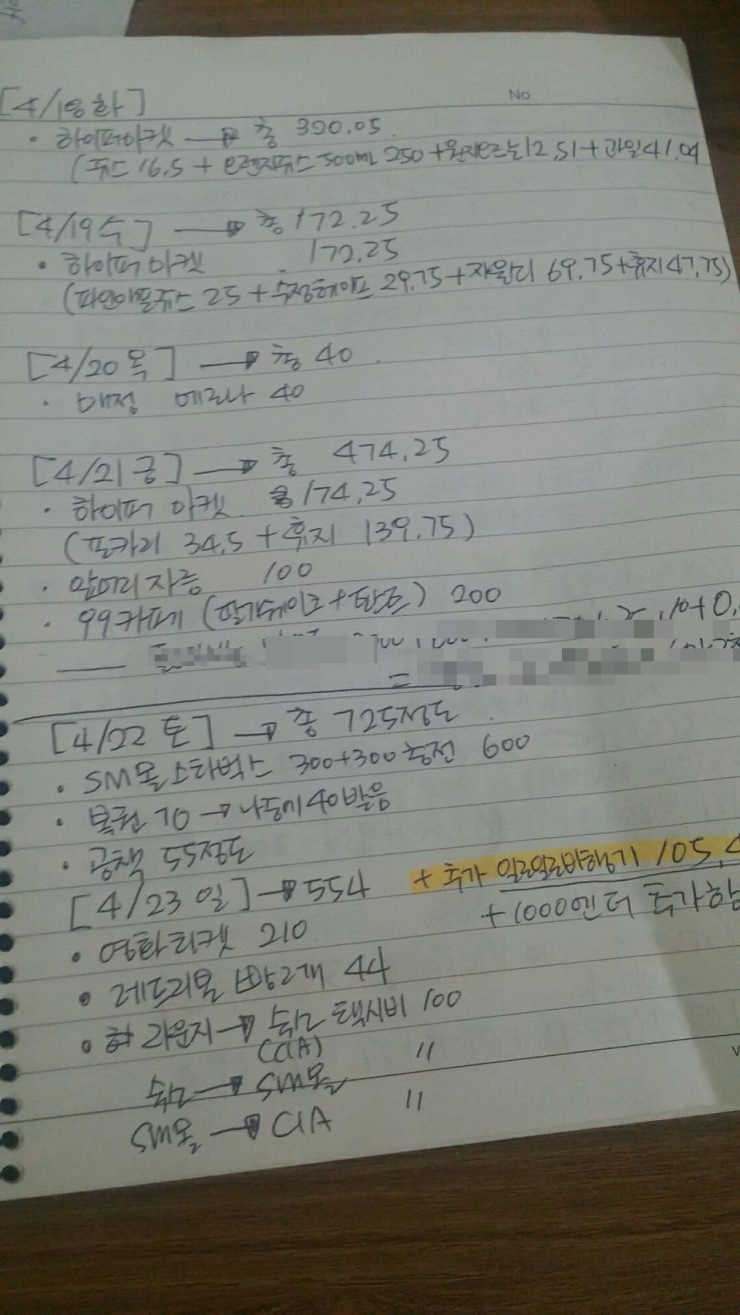 No.
[4/18 화]
· 하이퍼마켓 → 총 320.05
(푸드 16.5 + 오렌지쥬스 500ml 250 + 12.51 + 과일 41.04
[4/19 수] → 총 172.25
· 하이퍼마켓 172.25
(파인애플쥬스 25 + 수정테이프 29.75 + 자물쇠 69.75 + 휴지 47.75)
[4/20 목] → 총 40
· 매점 메로나 40
[4/21 금] → 총 474.25
· 하이퍼 마켓 174.25
(포카리 34.5 + 휴지 139.75)
· 앞머리자름 100
· 99카페 (딸기쉐이크 + ) 200
[4/22 토] → 총 725정도
· SM몰 스타벅스 300+300충전 600
· 복권 70 → 나중에 40받음
· 공책 55정도
+ 추가 일로일로비행기 105
[4/23 일] → 554
+1000엔더 추가함
· 영화티켓 210
· 레드리본 빵2개 44
· 라운지 → 숙소 택시비 100
(CIA)
숙소 → SM몰 〃
SM몰 → CIA 〃